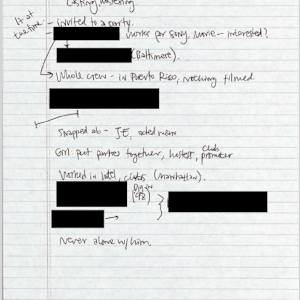 Casting
- invited to a party.
works for Sony, Movie - interested?
(Baltimore).
Whole crew - in Puerto Rico, nothing filmed
Snapped ab - JE, acted mean
Girl: put parties together, hostess, club promoter
Worked in hotel, clubs (Manhattan).
Never alone w/ him.